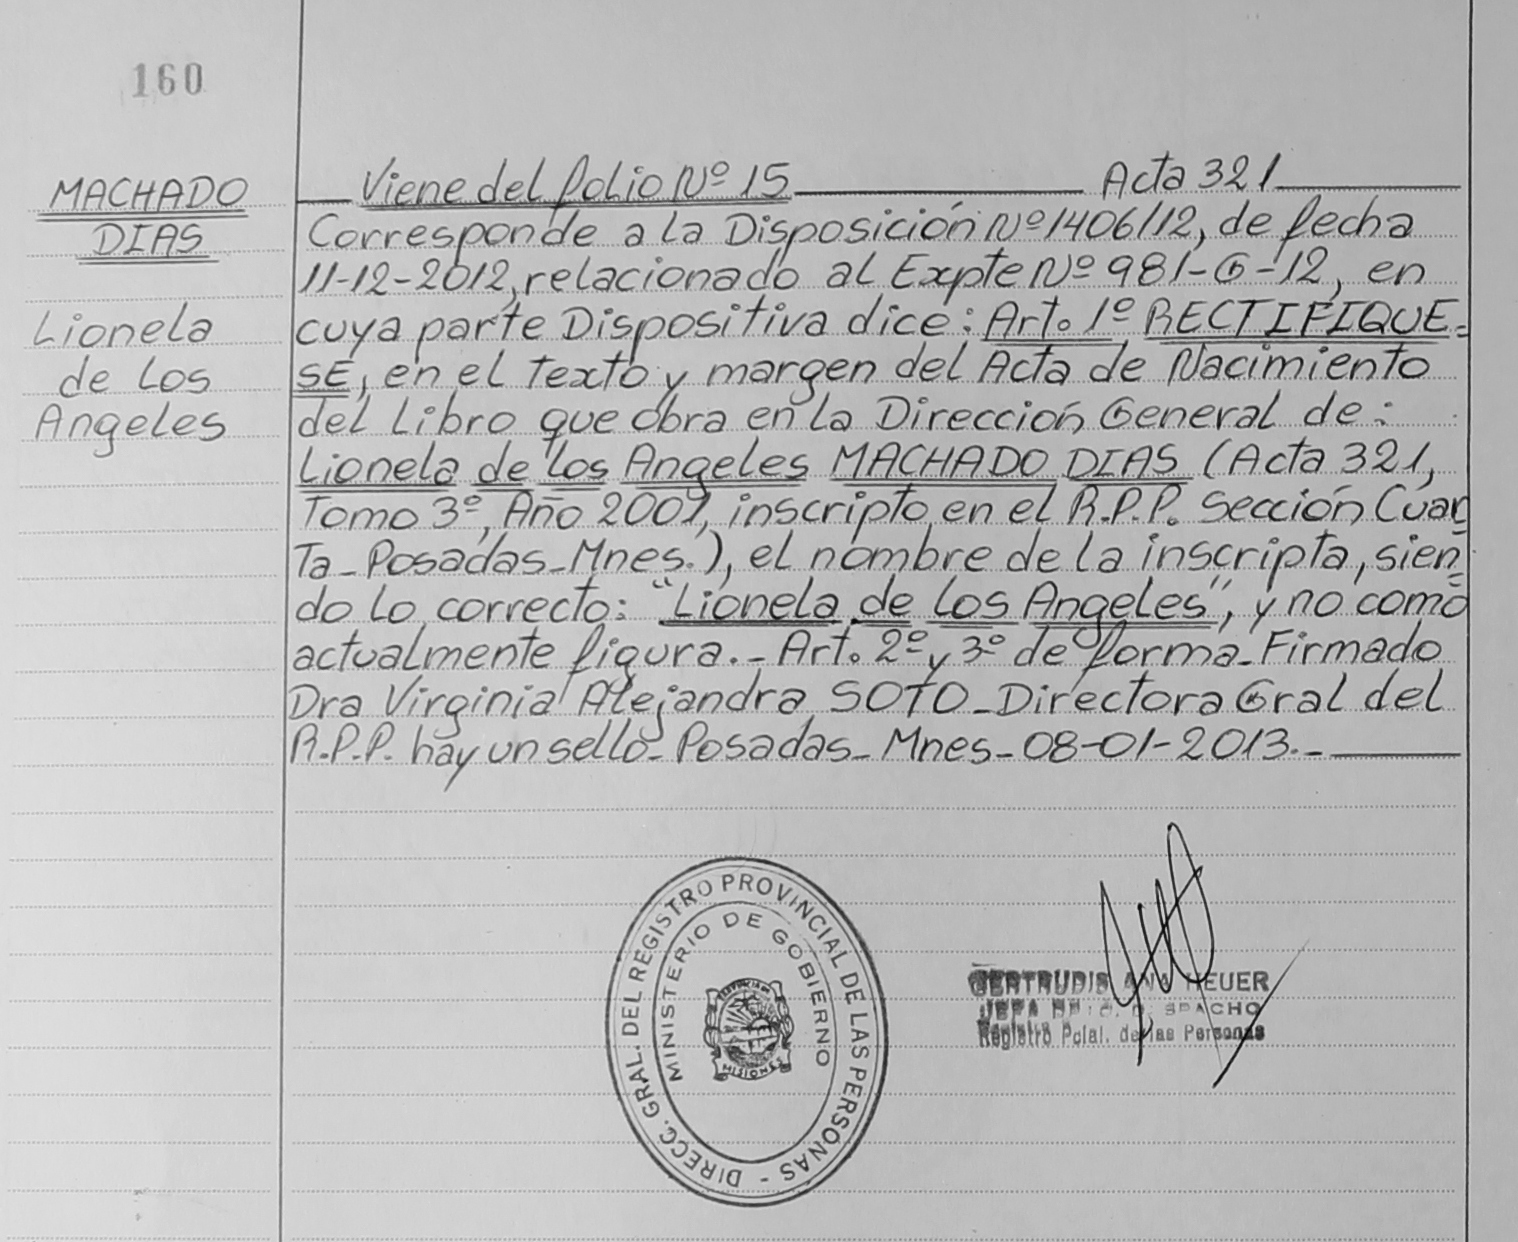 160
MACHADO
DIAS
Lionela
de los
Angeles
Viene del folio Nº 15 Acta 321
Corresponde a la Disposición Nº 1406/12, de fecha
11-12-2012, relacionado al Expte Nº 981-G-12, en
cuya parte Dispositiva dice: Art. 1º RECTIFIQUE-
SE, en el Texto y margen del Acta de Nacimiento
del Libro que obra en la Dirección General de:
Lionela de los Angeles MACHADO DIAS (Acta 321,
Tomo 3º, Año 2007, inscripto en el R.P.P. Sección Cuar
Ta - Posadas - Mnes.), el nombre de la inscripta, sien
do lo correcto: "Lionela de los Angeles", y no como
actualmente figura. - Art. 2º y 3º de forma - Firmado
Dra Virginia Alejandra SOTO - Directora Gral del
R.P.P. hay un sello - Posadas - Mnes - 08-01-2013. -
DIRECC. GRAL. DEL REGISTRO PROVINCIAL DE LAS PERSONAS -
MINISTERIO DE GOBIERNO
MISIONES
GERTRUDIS ANA HEUER
JEFA
Registro Pcial. de las Personas